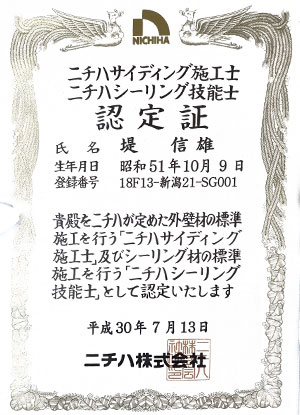 NICHIHA
ニチハサイディング施工士
ニチハシーリング技能士
認定証
氏名 堤 信雄
生年月日 昭和51年10月9日
登録番号 18F13-新潟21-SG001
貴殿をニチハが定めた外壁材の標準
施工を行う「ニチハサイディング
施工士」及びシーリング材の標準
施工を行う「ニチハシーリング
技能士」として認定いたします
平成30年7月13日
ニチハ株式会社